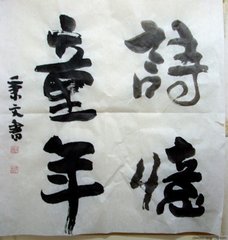 詩憶
童年
文書